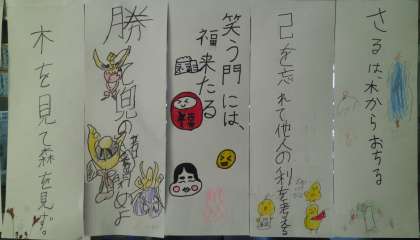 さるは木からおちる
己を忘れて他人の利を考える
笑う門には、
福来たる
勝て兜の緒を締めよ
木を見て森を見ず。